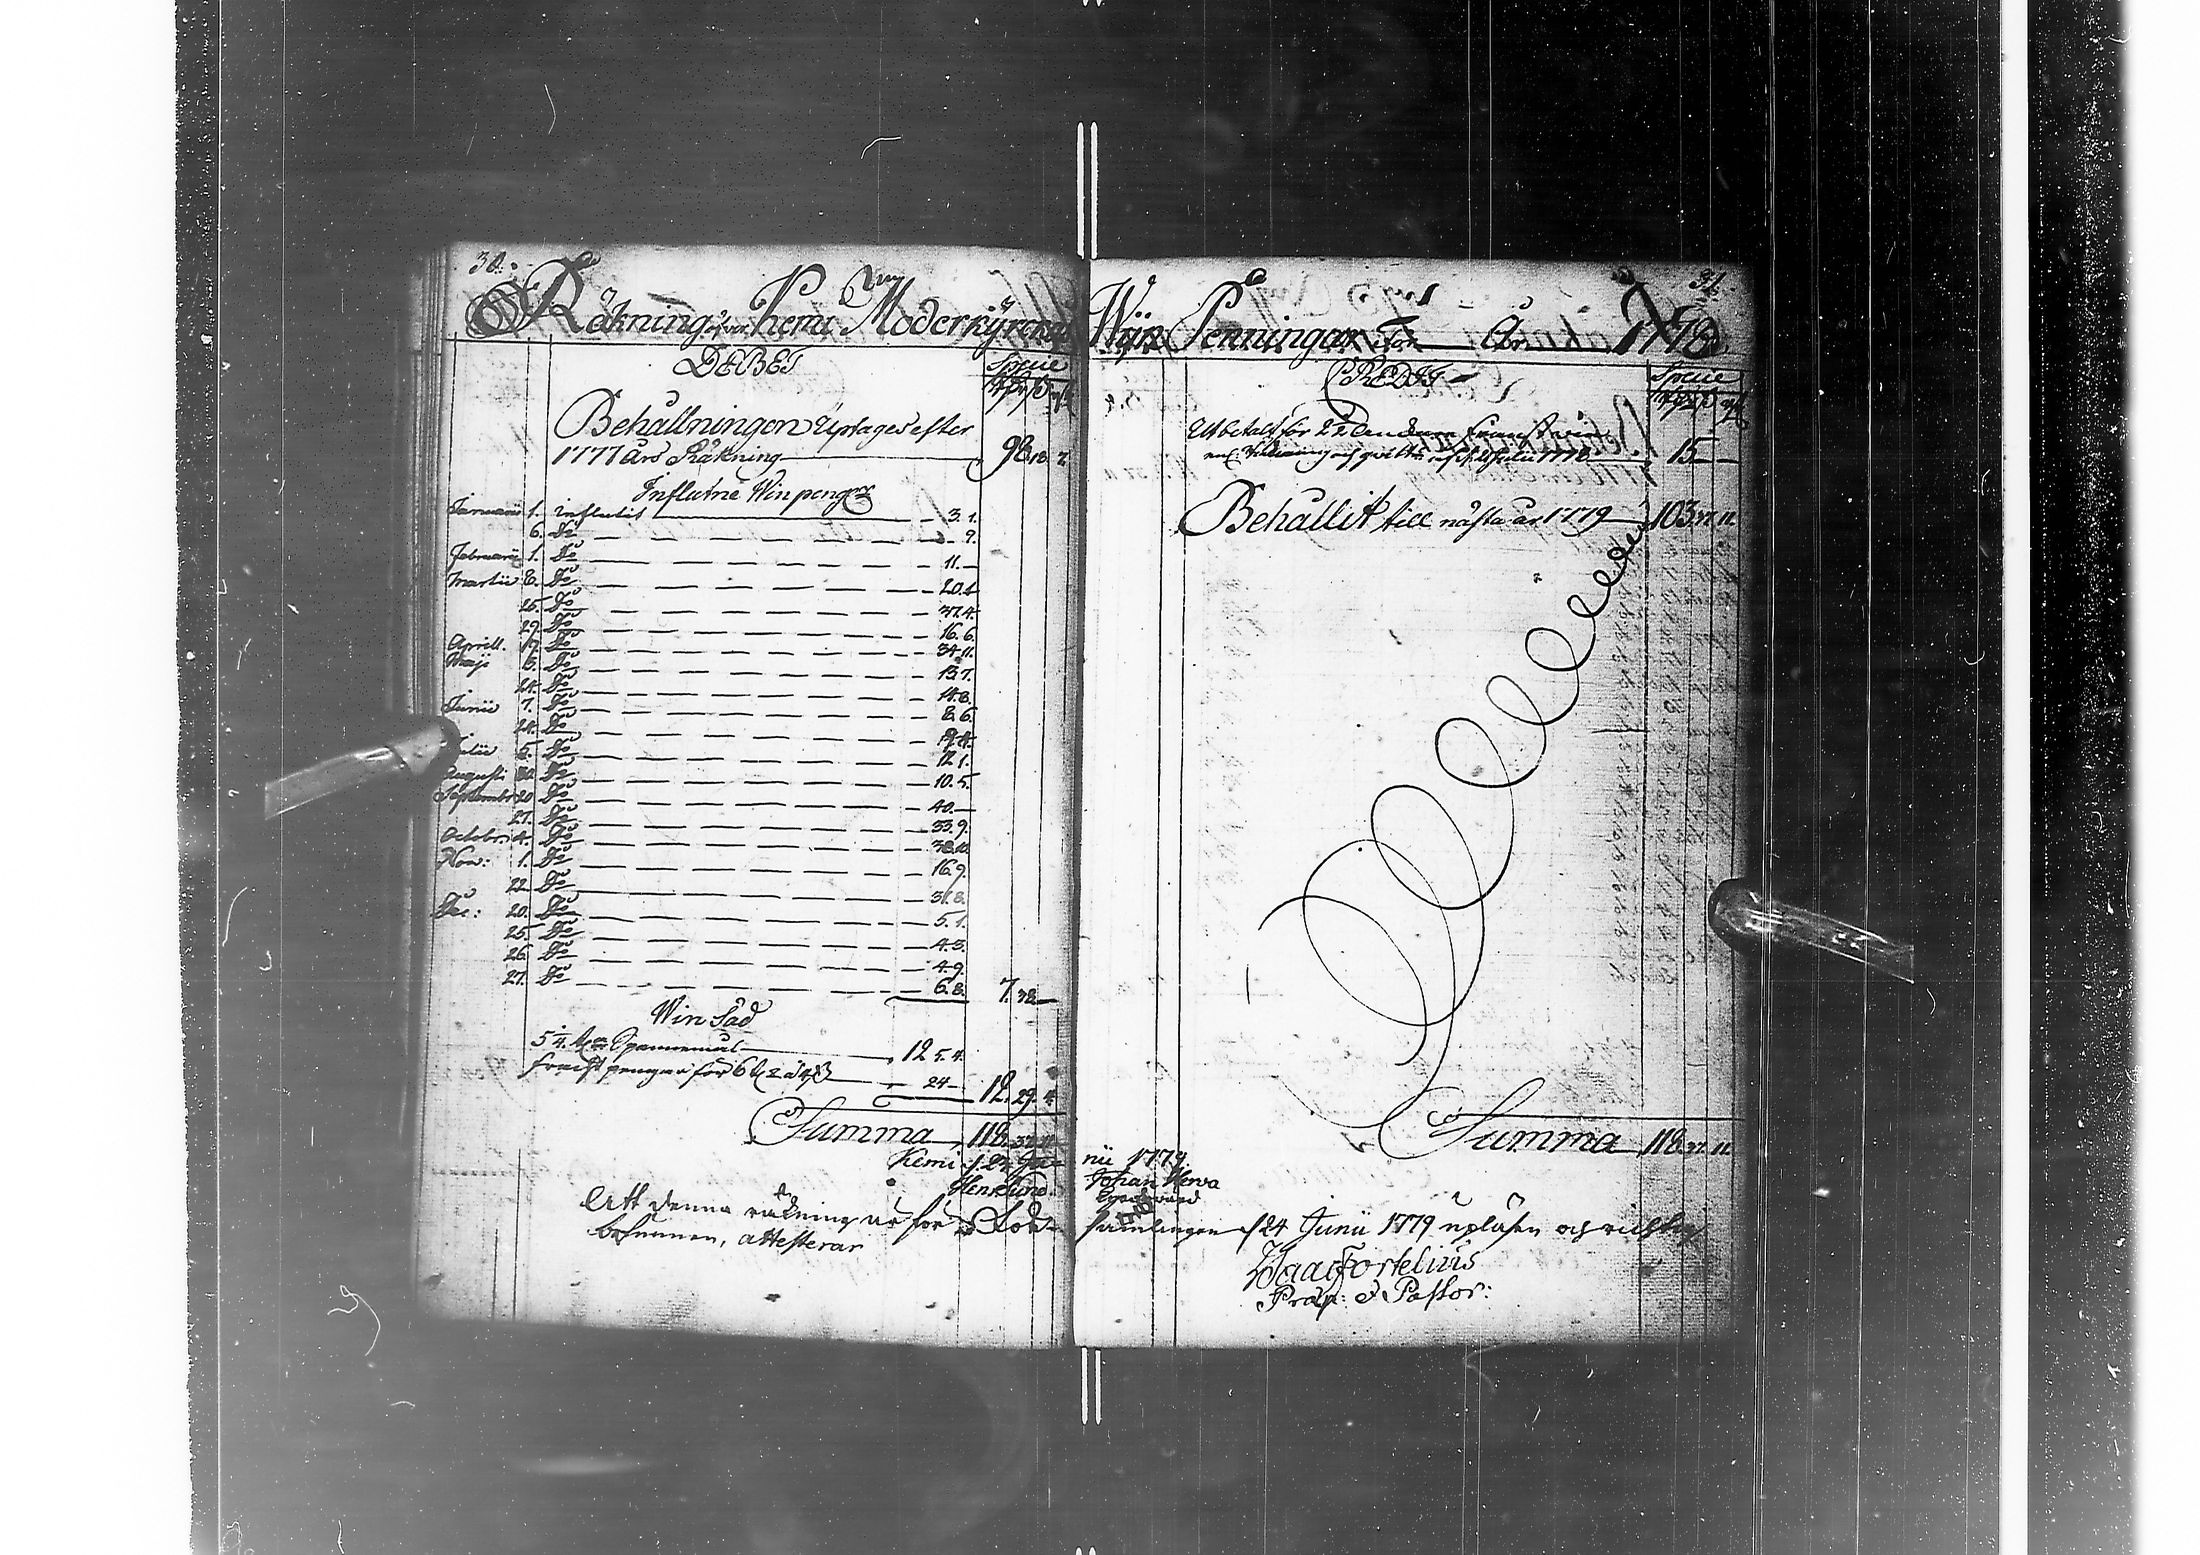 30.
Räkning öfver Kemi Moderkyrckas
DEBET
Specie
Behållningen Uptages efter
1777 års Räkning 98. 18. 7.
Influtne Winpengar
Januarii 1. influtit 3. 1.
6. Do 9.
Februarii 1. Do 11. —
Martii 8. Do 20. 4
25. Do 37. 4.
29. Do 16. 6.
Aprill. 17. Do 34. 11.
Maji 3. Do 13. 7.
24. Do 14. 8.
Junii 7. Do 8. 6.
24. Do
Julii 5. Do 12. 1.
Augusti 30. Do 10. 5.
Septembr 20. Do 40. —
27. Do 33. 9.
Octobr. 4. Do 38. 10.
Nov: 1. Do 16. 9.
22. Do 31. 8.
Dec: 20. Do 5. 1.
25. Do 4. 3.
26. Do 4. 9.
27. Do 6. 8. 7. 38. —
Win Säd
5 1/4. Spannemål 12 5. 4.
fracht pengar för 6 24 — 12. 29. 4.
Summa 118. 37. 11.
Kemi d. 24 Ju-
Hens Lund.
Att denna räkning är för Kyrko-
befunnen, attesterar
31.
Wijn Penningar för År 1778.
CREDIT
Specie
Utbetalt för 22 kannor Franskt win
15 —
Behållit till nästa år 1779 103. 37. 11.
Summa 118. 37. 11.
nii 1779
Johan Herva
samlingen d 24 Junii 1779 upläsen och richtig
Isaac Fortelius
Præp: & Pastor: